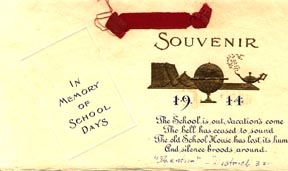 IN
MEMORY
OF
SCHOOL
DAYS
SOUVENIR
1914
The School is out, vacation's come
The bell has ceased to sound
The old School House has lost its hum
And silence broods around.